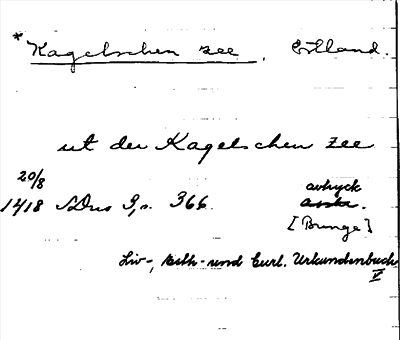 * Kagelschen zee. Estland.
ut der Kagelschen zee
20/8
1418 SDns 3, s. 366. avtryck
[Bunge]
Liv-, Esth- und Curl. Urkundenbuch
V